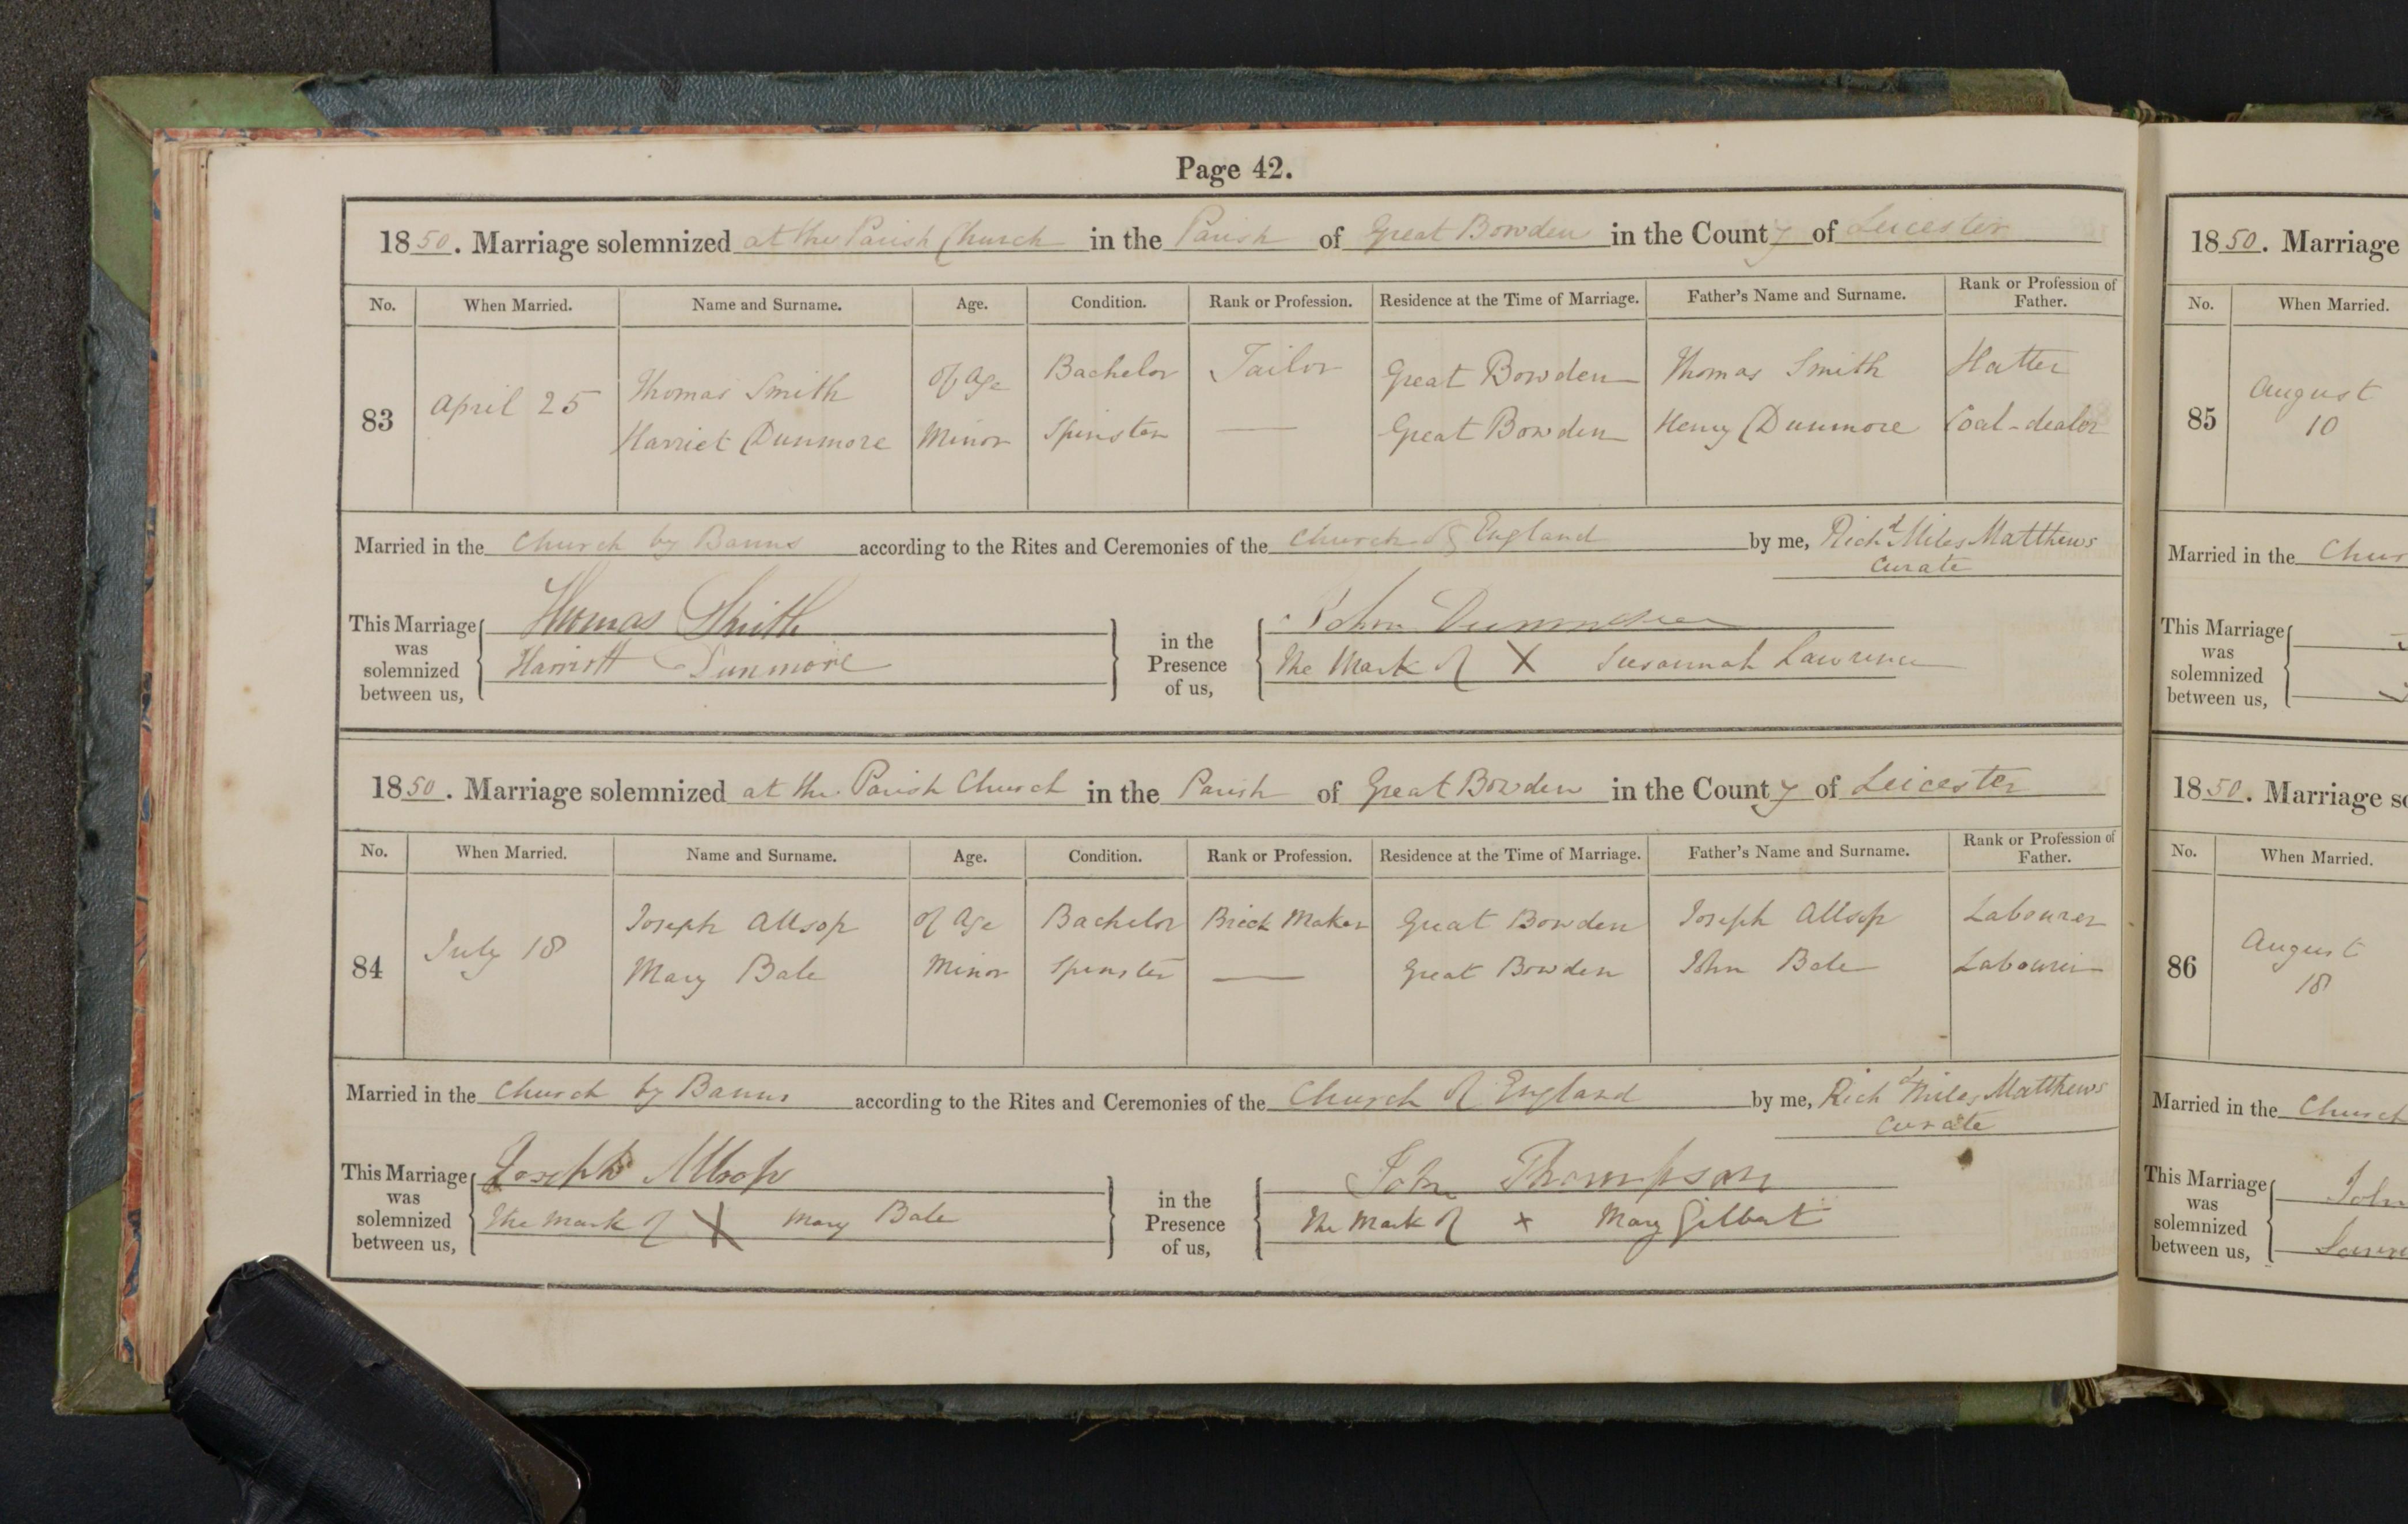 Page 42.
1850. Marriage solemnized at the Parish Church in the Parish of Great Bowden in the County of Leicester
No. When Married. Name and Surname. Age. Condition. Rank or Profession. Residence at the Time of Marriage. Father's Name and Surname. Rank or Profession of Father.
83 April 25 Thomas Smith of Age Bachelor Tailor Great Bowden Thomas Smith Hatter
Harriet Dunmore Minor Spinster — Great Bowden Henry Dunmore Coal-dealer
Married in the Church by Banns according to the Rites and Ceremonies of the Church of England by me, Richd Miles Matthews
Curate
This Marriage was solemnized between us, Thomas Smith in the Presence of us, John Dunmore
Harriott Dunmore The Mark of X Susannah Lawrence
1850. Marriage solemnized at the Parish Church in the Parish of Great Bowden in the County of Leicester
No. When Married. Name and Surname. Age. Condition. Rank or Profession. Residence at the Time of Marriage. Father's Name and Surname. Rank or Profession of Father.
84 July 18 Joseph Allsop of Age Bachelor Brick Maker Great Bowden Joseph Allsop Labourer
Mary Bale Minor Spinster — Great Bowden John Bale Labourer
Married in the Church by Banns according to the Rites and Ceremonies of the Church of England by me, Richd Miles Matthews
Curate
This Marriage was solemnized between us, Joseph Allsop in the Presence of us, John Thompson
The mark of X Mary Bale The Mark of x Mary Gilbert
1850. Marriage
No. When Married.
85 August
10
Married in the Chur
This Marriage was solemnized between us,
1850. Marriage so
No. When Married.
86 August
18
Married in the Church
This Marriage was solemnized between us, John